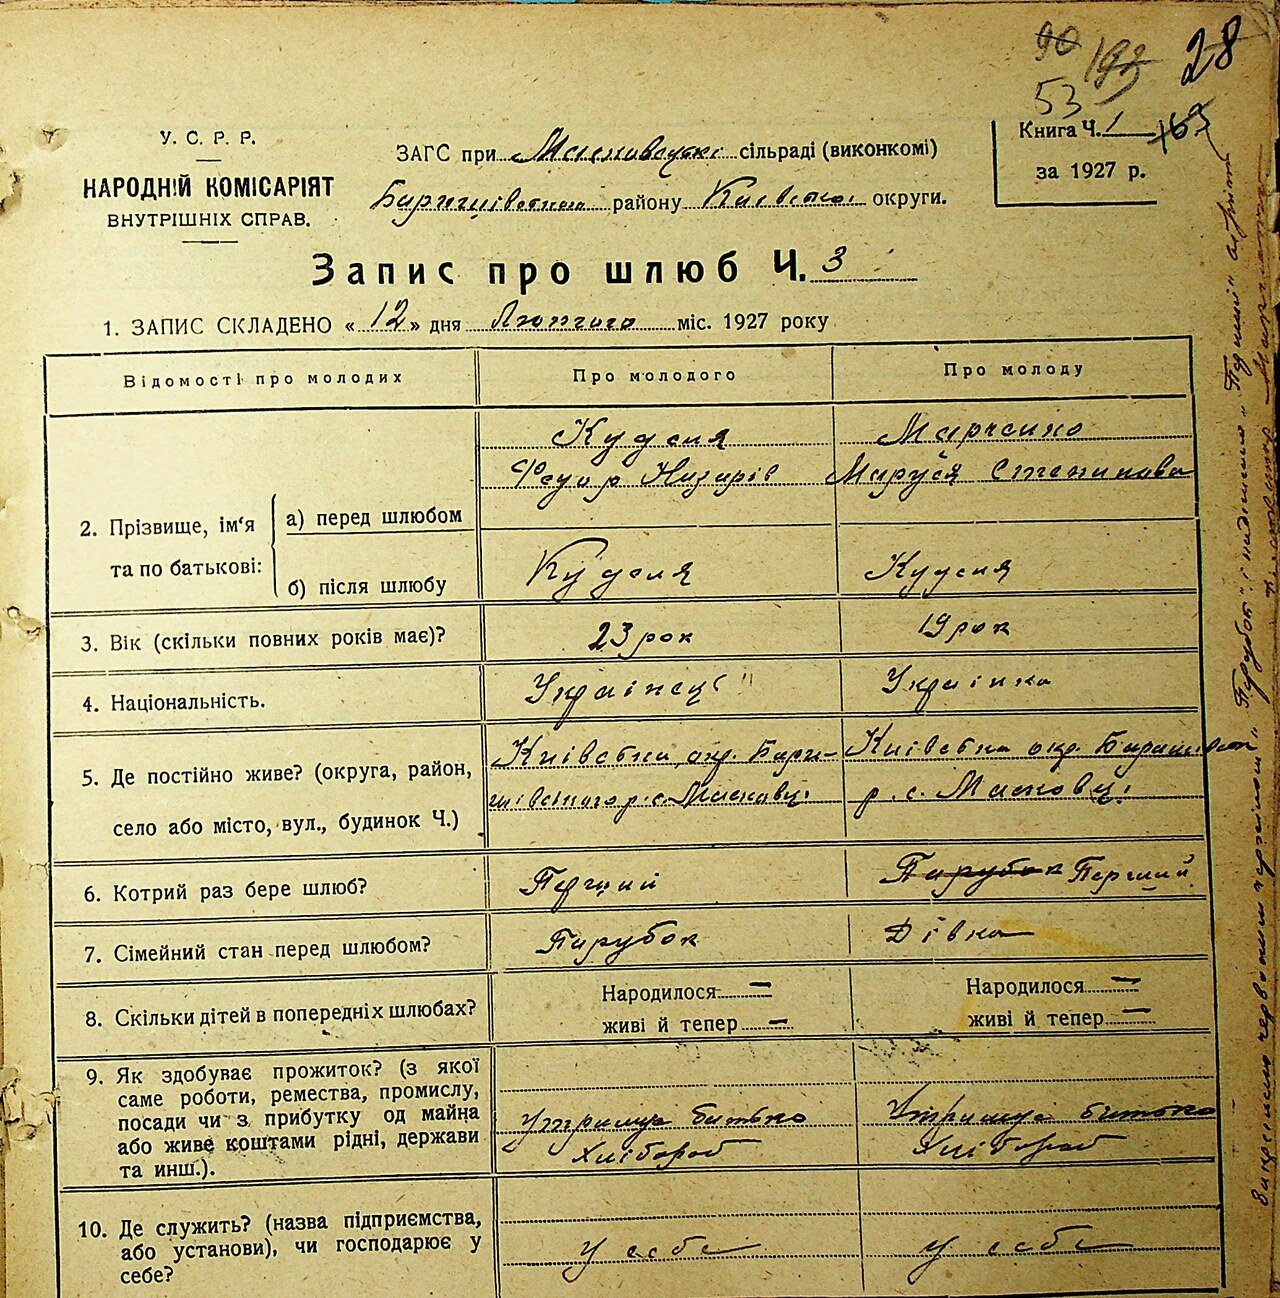 90 193 28
53
Книга Ч. 1 163
за 1927 р.
У. С. Р. Р.
НАРОДНІЙ КОМІСАРІЯТ
ВНУТРІШНІХ СПРАВ.
ЗАГС при Масковецькі сільраді (виконкомі)
Баришівського району Київської округи.
Запис про шлюб Ч. 3
1. ЗАПИС СКЛАДЕНО « 12 » дня Лютого міс. 1927 року
Відомості про молодих Про молодого Про молоду
2. Прізвище, ім‘я та по батькові:
а) перед шлюбом
Куделя
Федор Назарів
Марченко
Маруся Степанова
б) після шлюбу
Куделя
Куделя
3. Вік (скільки повних років має)?
23 рок
19 рок
4. Національність.
Українец
Українка
5. Де постійно живе? (округа, район,
село або місто, вул., будинок Ч.)
Київська окр. Бари-
шівського р. с. Масковці
Київська окр. Баришівськ
р. с. Масковці
6. Котрий раз бере шлюб?
Перший
Парубок Перший
7. Сімейний стан перед шлюбом?
Парубок
Дівка
8. Скільки дітей в попередніх шлюбах?
Народилося —
живі й тепер —
Народилося —
живі й тепер —
9. Як здобуває прожиток? (з якої
саме роботи, ремества, промислу,
посади чи з прибутку од майна
або живе коштами рідні, держави
та инш.).
Утримує батько
Хлібороб
Утримує батько
Хлібороб
10. Де служить? (назва підприємства,
або установи), чи господарює у
себе?
у себе
у себе
Закреслено червоним чернилом „Парубок" і надписано „Перший"